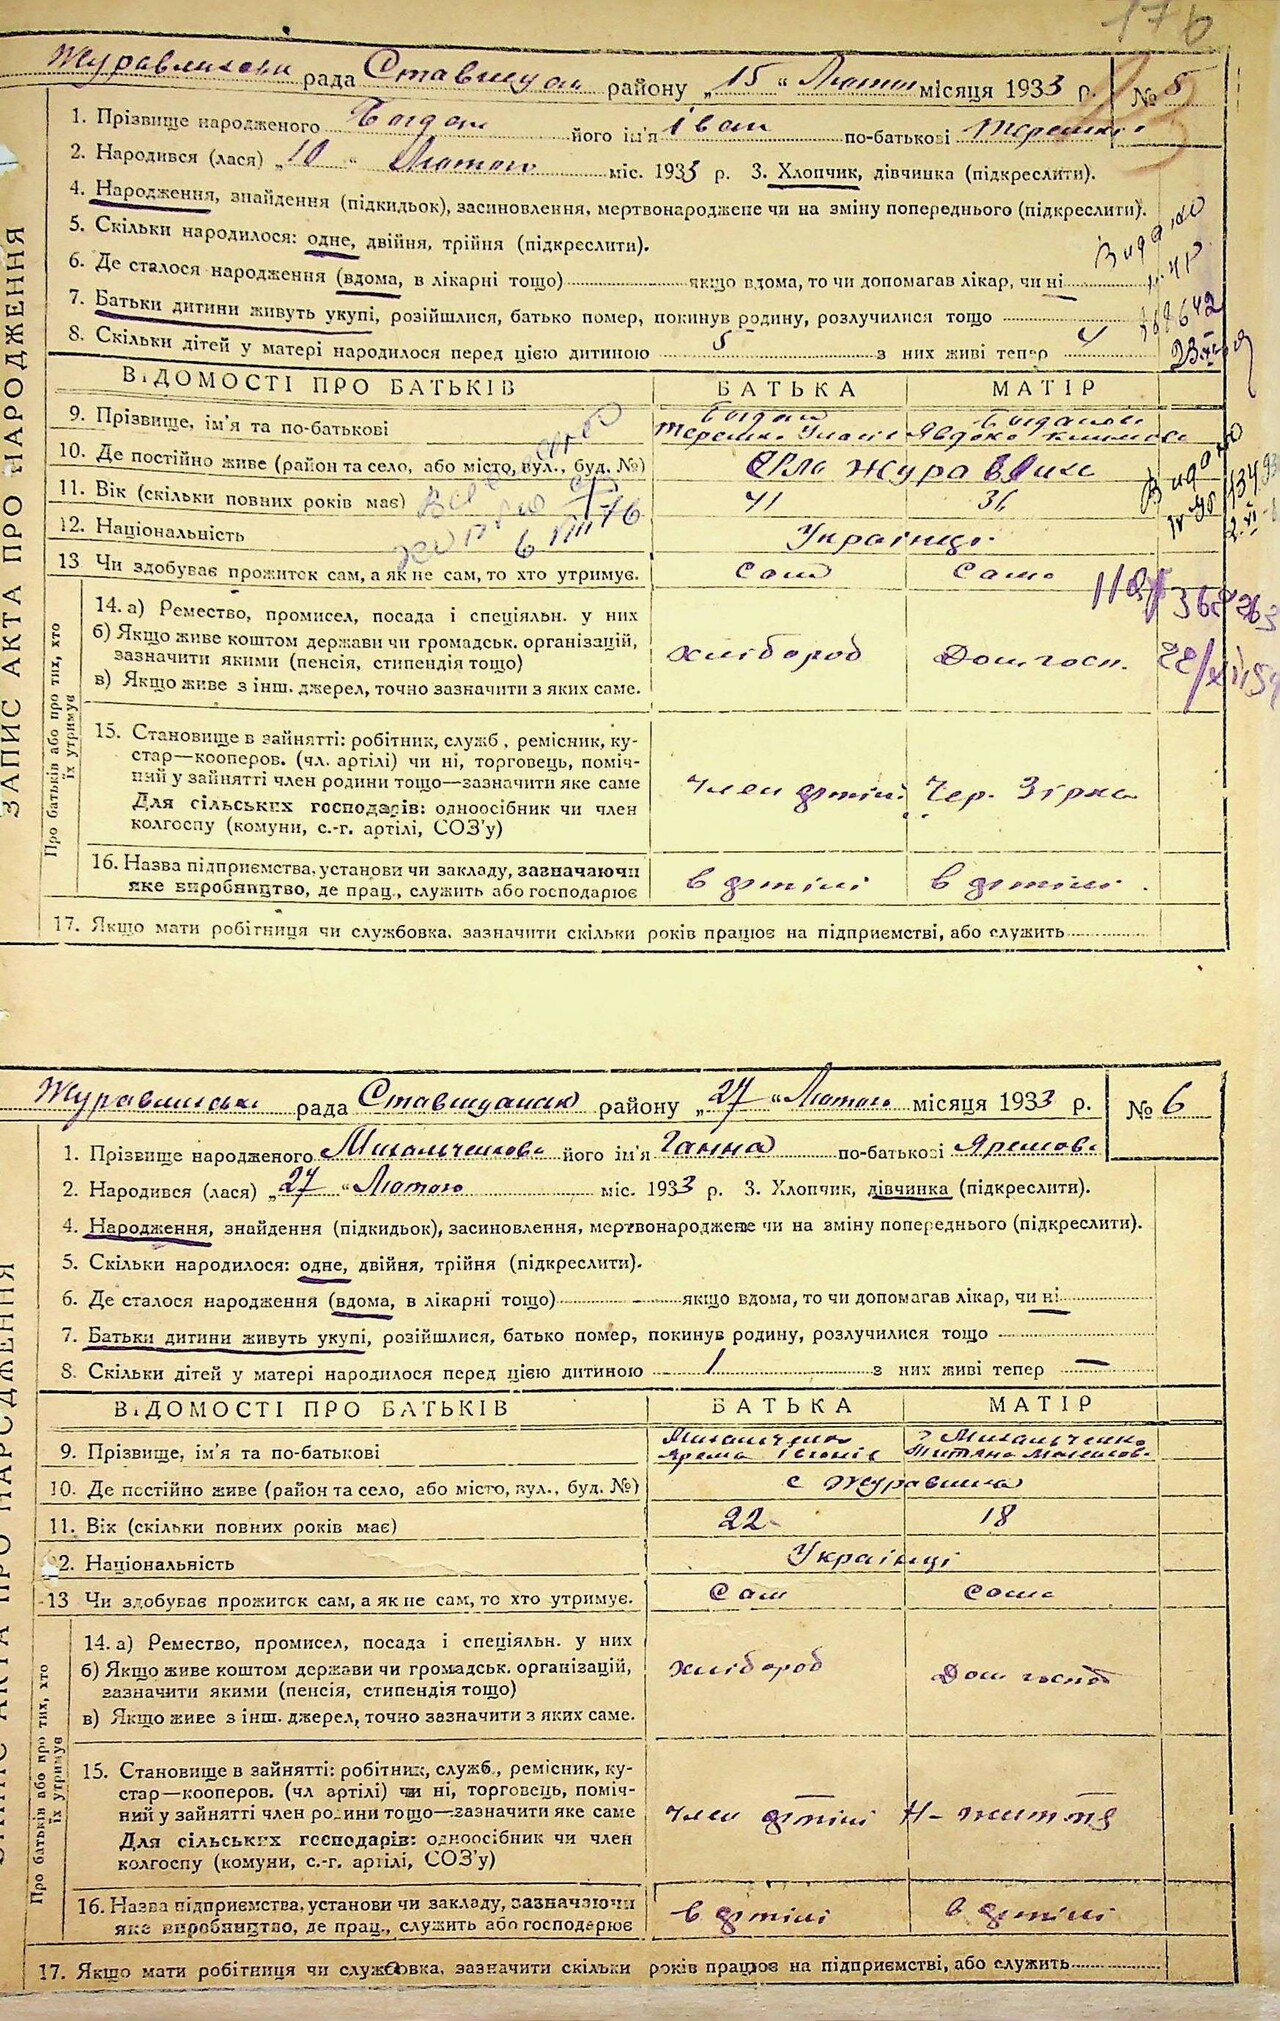 176
ЗАПИС АКТА ПРО НАРОДЖЕННЯ
рада району „15“ місяця 1933 р. № 5
1. Прізвище народженого Богдан його ім'я Іван по-батькові
2. Народився (лася) „10“ Лютого міс. 1933 р. 3. Хлопчик, дівчинка (підкреслити).
4. Народження, знайдення (підкидьок), засиновлення, мертвонароджене чи на зміну попереднього (підкреслити).
5. Скільки народилося: одне, двійня, трійня (підкреслити).
6. Де сталося народження (вдома, в лікарні тощо) якщо вдома, то чи допомагав лікар, чи ні
7. Батьки дитини живуть укупі, розійшлися, батько помер, покинув родину, розлучилися тощо
8. Скільки дітей у матері народилося перед цією дитиною 5 з них живі тепер 4
Видано
368642
ВІДОМОСТІ ПРО БАТЬКІВ БАТЬКА МАТІР
9. Прізвище, ім'я та по-батькові Богдан
10. Де постійно живе (район та село, або місто, вул., буд. №) Село Журавлиха
11. Вік (скільки повних років має) 41 36
12. Національність Українці
13 Чи здобуває прожиток сам, а як не сам, то хто утримує. сам сама
Про батьків або про тих, хто їх утримує
14. а) Ремество, промисел, посада і спеціяльн. у них
б) Якщо живе коштом держави чи громадськ. організацій,
зазначити якими (пенсія, стипендія тощо) хлібороб Дом. госп.
в) Якщо живе з інш. джерел, точно зазначити з яких саме.
15. Становище в зайнятті: робітник, служб, ремісник, ку-
стар—кооперов. (чл. артілі) чи ні, торговець, поміч-
ний у зайнятті член родини тощо—зазначити яке саме член артілі Чер. Зірка
Для сільських господарів: одноосібник чи член
колгоспу (комуни, с.-г. артілі, СОЗ'у)
16. Назва підприємства, установи чи закладу, зазначаючи
яке виробництво, де прац., служить або господарює в артілі в артілі
17. Якщо мати робітниця чи службовка, зазначити скільки років працює на підприємстві, або служить
рада району „27“ Лютого місяця 1933 р. № 6
1. Прізвище народженого його ім'я Ганна по-батькові
2. Народився (лася) „27“ Лютого міс. 1933 р. 3. Хлопчик, дівчинка (підкреслити).
4. Народження, знайдення (підкидьок), засиновлення, мертвонароджене чи на зміну попереднього (підкреслити).
5. Скільки народилося: одне, двійня, трійня (підкреслити).
6. Де сталося народження (вдома, в лікарні тощо) якщо вдома, то чи допомагав лікар, чи ні
7. Батьки дитини живуть укупі, розійшлися, батько помер, покинув родину, розлучилися тощо
8. Скільки дітей у матері народилося перед цією дитиною 1 з них живі тепер —
ВІДОМОСТІ ПРО БАТЬКІВ БАТЬКА МАТІР
9. Прізвище, ім'я та по-батькові Михальченко Михальченко
10. Де постійно живе (район та село, або місто, вул., буд. №) с Журавлиха
11. Вік (скільки повних років має) 22 18
12. Національність Українці
13 Чи здобуває прожиток сам, а як не сам, то хто утримує. сам сама
Про батьків або про тих, хто їх утримує
14. а) Ремество, промисел, посада і спеціяльн. у них
б) Якщо живе коштом держави чи громадськ. організацій,
зазначити якими (пенсія, стипендія тощо) хлібороб Дом госпо
в) Якщо живе з інш. джерел, точно зазначити з яких саме.
15. Становище в зайнятті: робітник, служб., ремісник, ку-
стар—кооперов. (чл артілі) чи ні, торговець, поміч-
ний у зайнятті член родини тощо—зазначити яке саме член артілі Н-життя
Для сільських господарів: одноосібник чи член
колгоспу (комуни, с.-г. артілі, СОЗ'у)
16. Назва підприємства, установи чи закладу, зазначаючи
яке виробництво, де прац., служить або господарює в артілі в артілі
17. Якщо мати робітниця чи службовка, зазначити скільки років працює на підприємстві, або служить